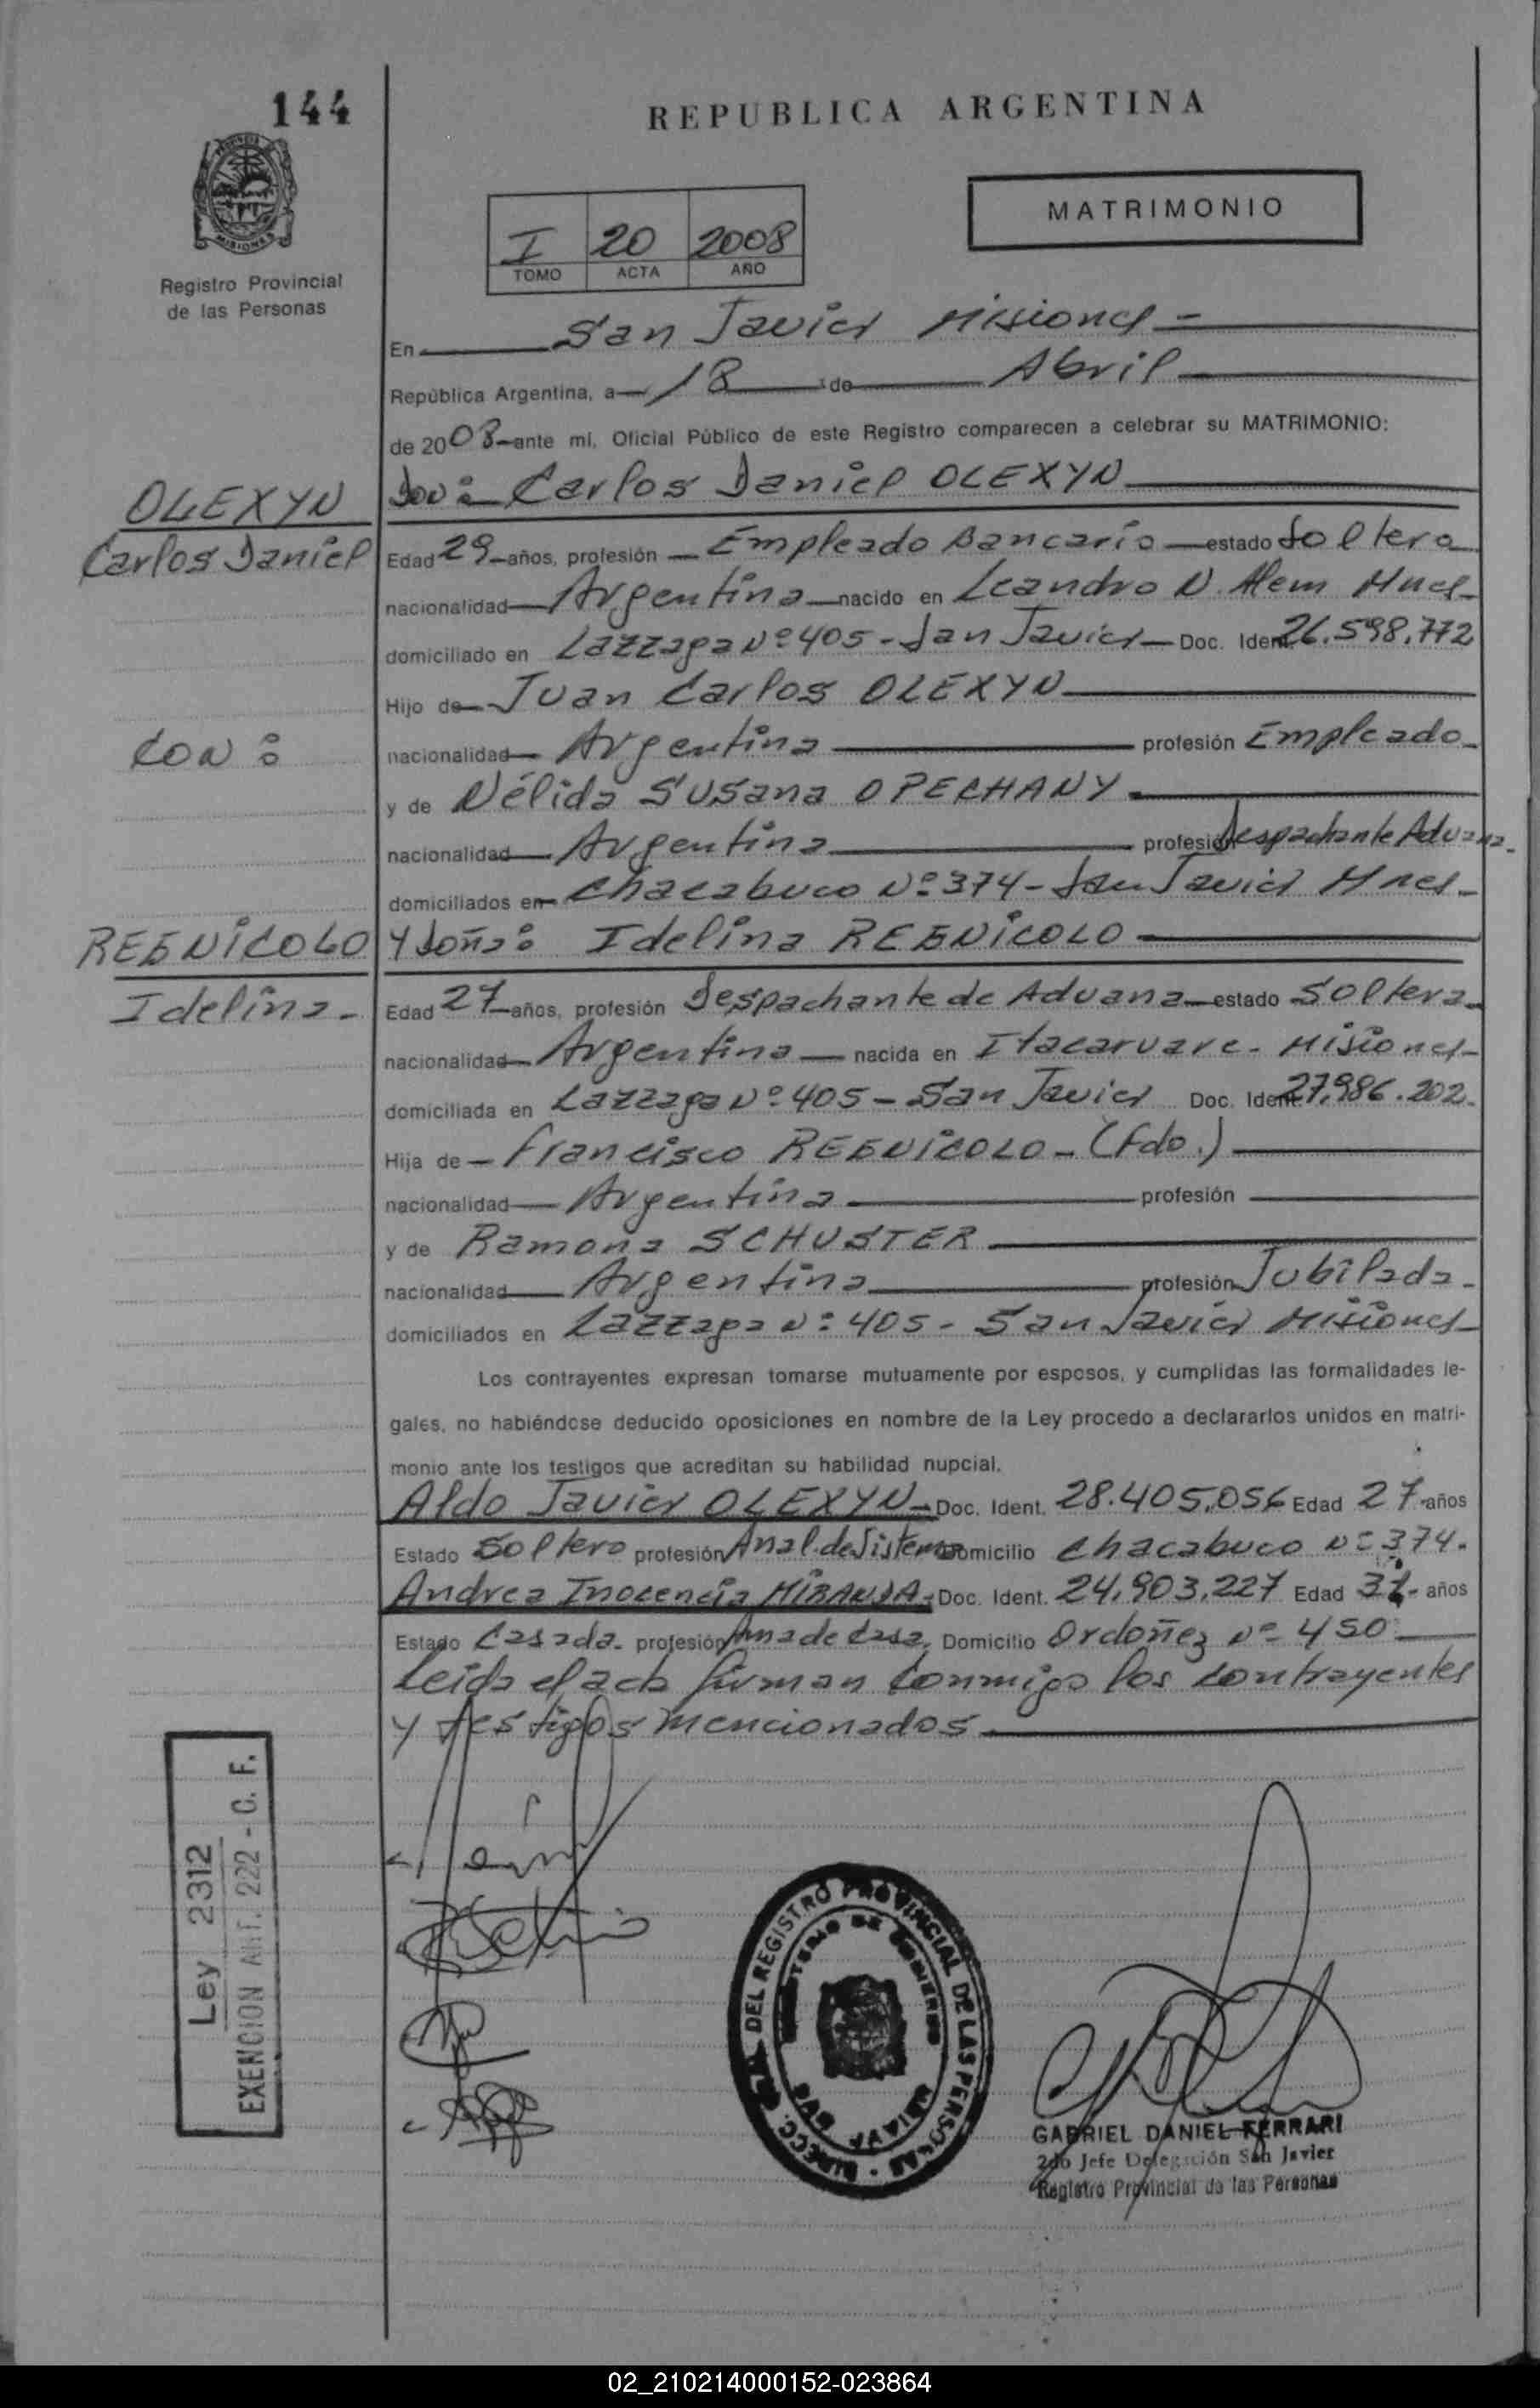 144
REPUBLICA ARGENTINA
MATRIMONIO
I 20 2008
TOMO ACTA AÑO
Registro Provincial
de las Personas
En San Javier Misiones -
República Argentina, a 18 de Abril
de 2008 ante mi, Oficial Público de este Registro comparecen a celebrar su MATRIMONIO:
Don: Carlos Daniel OLEXYN
OLEXYN
Carlos Daniel
Edad 29 años, profesión Empleado Bancario estado Soltero
nacionalidad Argentina nacido en Leandro N. Alem Mnes-
domiciliado en Lazzaga Nº 405 - San Javier - Doc. Ident. 26.598.772
Hijo de Juan Carlos OLEXYN
CON:
nacionalidad Argentina profesión Empleado
y de Nélida Susana OPECHANY
nacionalidad Argentina profesión Despachante Aduana.
domiciliados en Chacabuco Nº 374 - San Javier Mnes-
REBNICOLO
Y doña: Idelina REBNICOLO
Idelina -
Edad 27 años, profesión Despachante de Aduana estado Soltera
nacionalidad Argentina nacida en Itacaruare - Misiones-
domiciliada en Lazzaga Nº 405 - San Javier Doc. Ident. 27.986.202.
Hija de - Francisco REBNICOLO - (Fdo.)
nacionalidad Argentina profesión
y de Ramona SCHUSTER
nacionalidad Argentina profesión Jubilada -
domiciliados en Lazzaga Nº 405 - San Javier Misiones
Los contrayentes expresan tomarse mutuamente por esposos, y cumplidas las formalidades le-
gales, no habiéndose deducido oposiciones en nombre de la Ley procedo a declararlos unidos en matri-
monio ante los testigos que acreditan su habilidad nupcial.
Aldo Javier OLEXYN - Doc. Ident. 28.405.056 Edad 27 años
Estado Soltero profesión Anal. de Sistema domicilio Chacabuco Nº 374.
Andrea Inocencia MIRANDA - Doc. Ident. 24.903.227 Edad años
Estado Casada - profesión Ama de Casa, Domicilio Ordoñez Nº 450
Leída el acta firman conmigo los contrayentes
y testigos mencionados
Ley 2312
EXENCION ART. 222 - C. F.
DIRECC. GRAL. DEL REGISTRO PROVINCIAL DE LAS PERSONAS
MINISTERIO DE GOBIERNO
GABRIEL DANIEL FERRARI
2do Jefe Delegación San Javier
Registro Provincial de las Personas
02_210214000152-023864